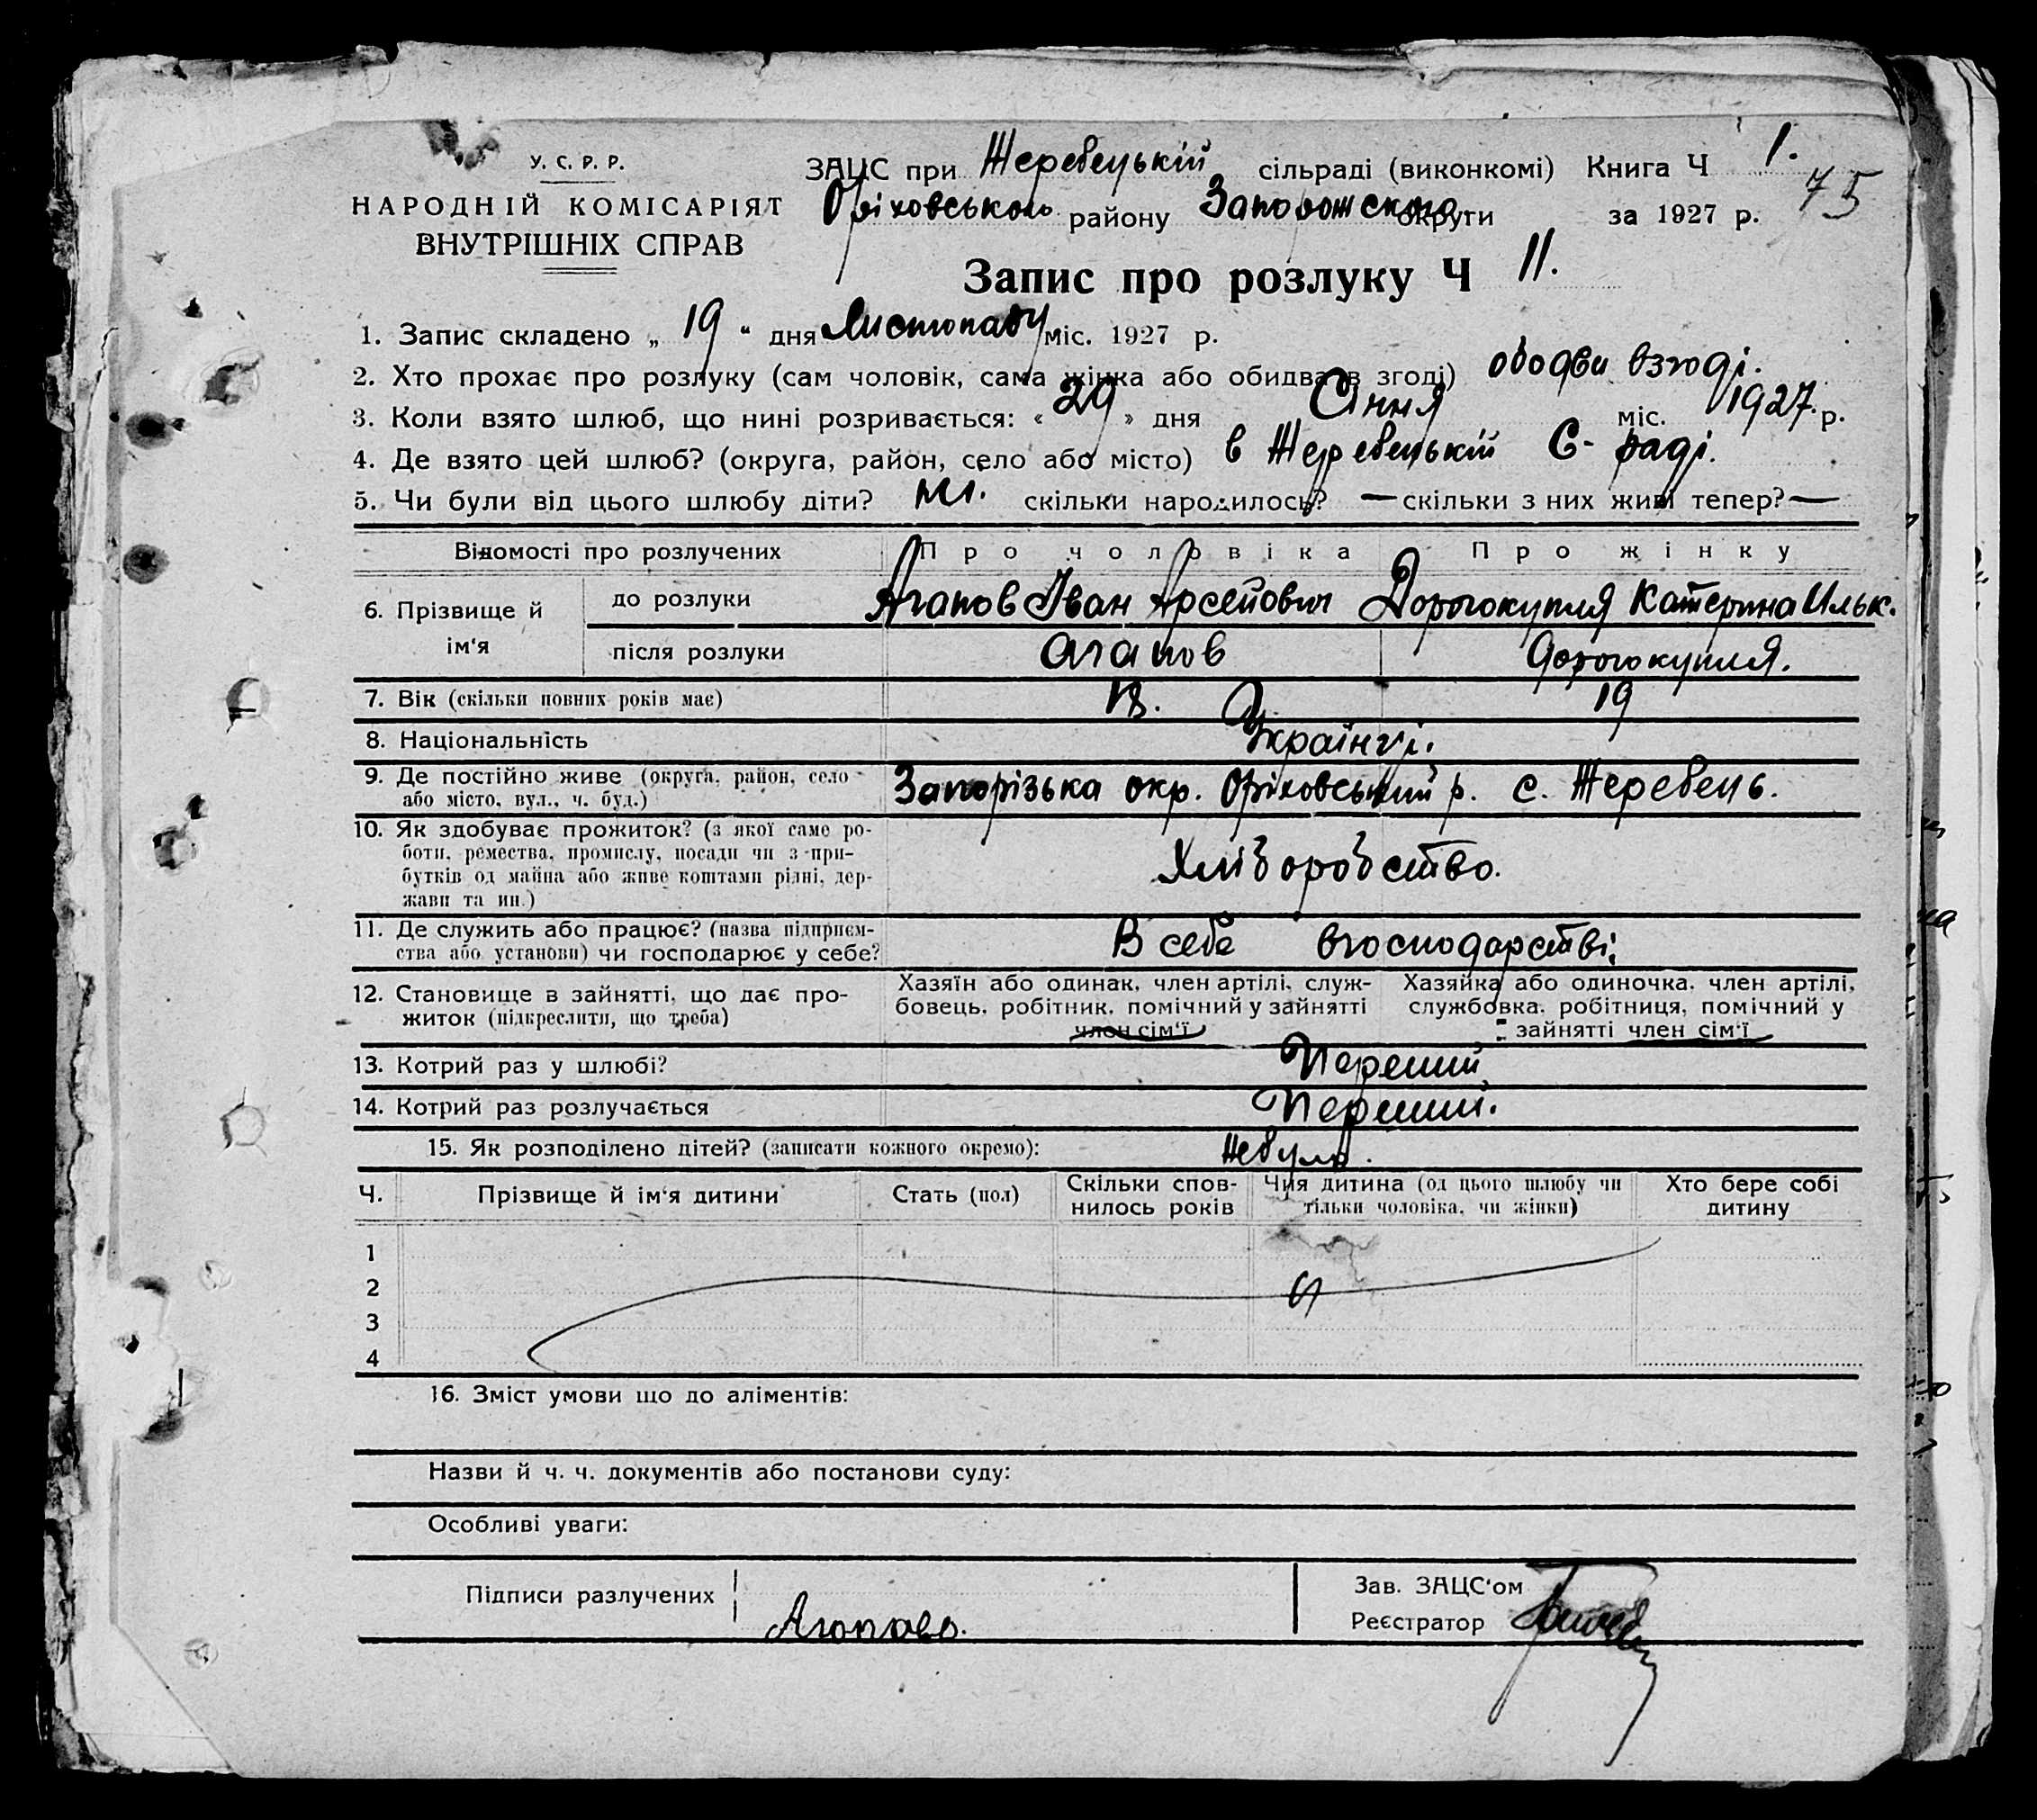 У. С. Р. Р.
НАРОДНІЙ КОМІСАРІЯТ
ВНУТРІШНІХ СПРАВ
ЗАЦС при Жеребецькій сільраді (виконкомі) Книга Ч 1.
Оріховського району Запорожского округи за 1927 р. 75
Запис про розлуку Ч 11.
1. Запис складено „ 19 “ дня Листопаду міс. 1927 р.
2. Хто прохає про розлуку (сам чоловік, сама жінка або обидва в згоді) ободви взгоді.
3. Коли взято шлюб, що нині розривається: « 29 » дня Січня міс. 1927. р.
4. Де взято цей шлюб? (округа, район, село або місто) в Жеребецькій С- раді.
5. Чи були від цього шлюбу діти? ні. скільки народилось? — скільки з них живі тепер? —
Відомості про розлучених Про чоловіка Про жінку
6. Прізвище й ім‘я
до розлуки Агапов Іван Арсейович Дорогокупля Катерина Ильк.
після розлуки Агапов Дорогокупля.
7. Вік (скільки повних років має) 18. 19
8. Національність Українці.
9. Де постійно живе (округа, район, село або місто, вул., ч. буд.) Запорізька окр. Оріховський р. с. Жеребець.
10. Як здобуває прожиток? (з якої саме ро-
боти, ремества, промислу, посади чи з при-
бутків од майна або живе коштами рідні, дер-
жави та ин.) Хліборобство.
11. Де служить або працює? (назва підприєм-
ства або установи) чи господарює у себе? В себе вгосподарстві.
12. Становище в зайнятті, що дає про-
житок (підкреслити, що треба)
Хазяїн або одинак, член артілі, служ-
бовець, робітник, помічний у зайнятті
член сім‘ї
Хазяйка або одиночка, член артілі,
службовка, робітниця, помічний у
зайнятті член сім‘ї
13. Котрий раз у шлюбі? Перший
14. Котрий раз розлучається Перший.
15. Як розподілено дітей? (записати кожного окремо): Небуло.
Ч. Прізвище й ім‘я дитини Стать (пол) Скільки спов-
нилось років Чия дитина (од цього шлюбу чи
тільки чоловіка, чи жінки) Хто бере собі
дитину
1
2
3
4
16. Зміст умови що до аліментів:
Назви й ч. ч. документів або постанови суду:
Особливі уваги:
Підписи разлучених Агопово.
Зав. ЗАЦС‘ом
Реєстратор